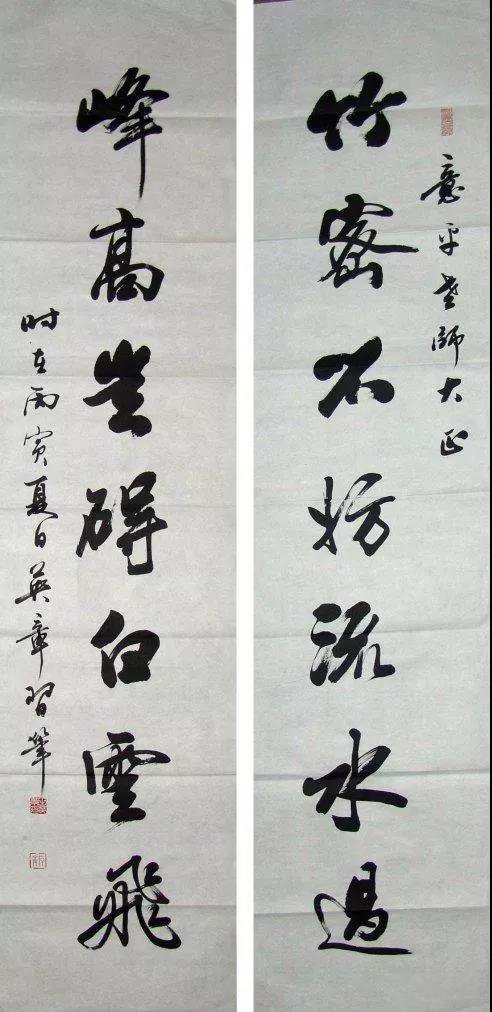 平老師大正
竹密不妨流水過
峰高岂碍白雲飛
时在丙寅夏日英章習筆